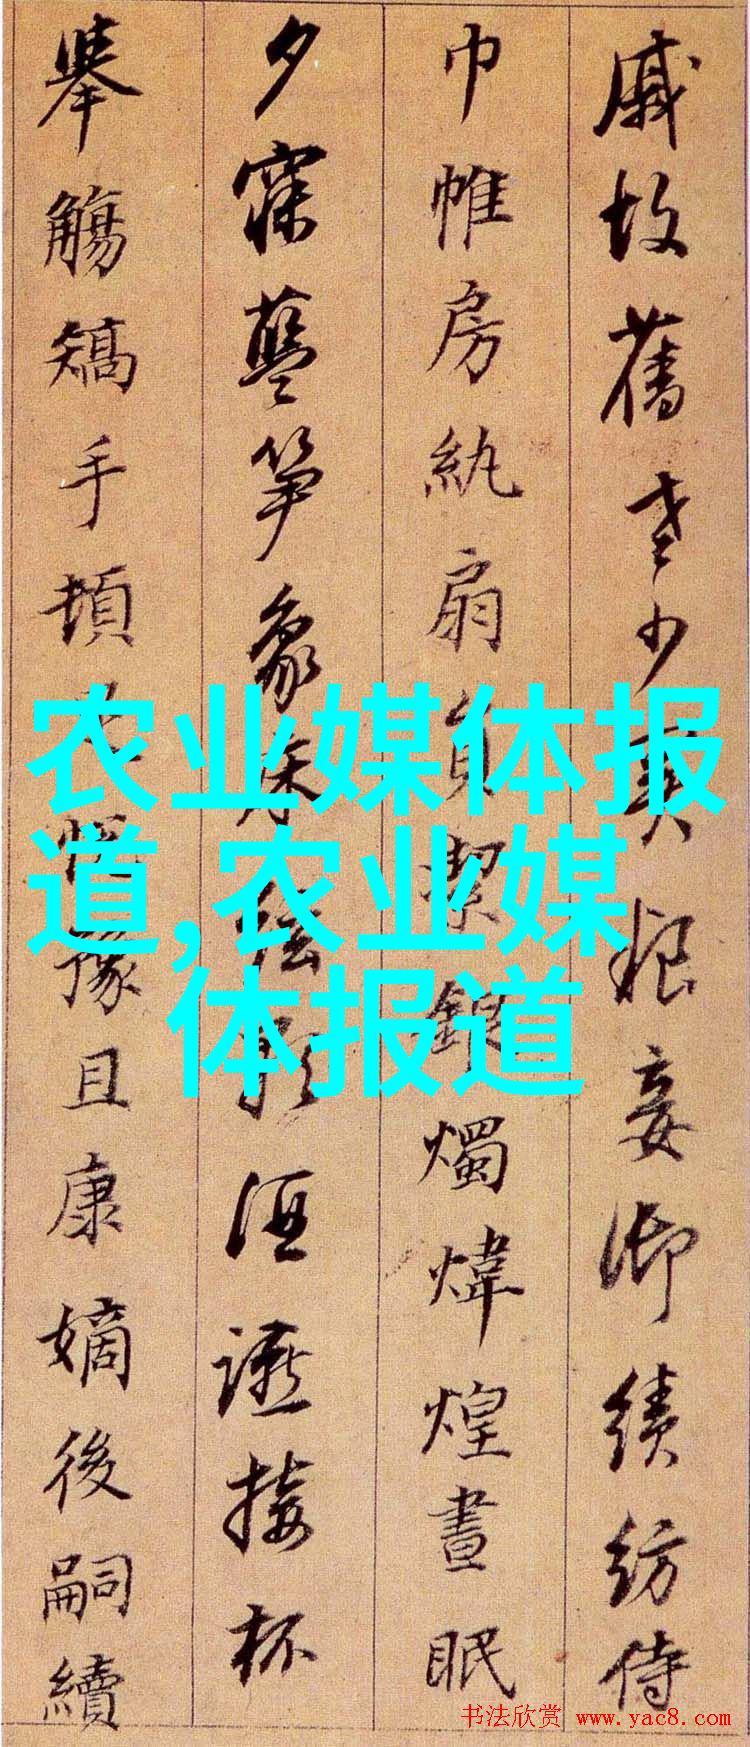 戚故舊老少異粮妾御績紡侍
巾帷房紈扇員絜銀燭煒煌晝眠
夕寐藍笋象床絃歌酒讌接杯
舉觴矯手頓悅豫且康嫡後嗣續
农业媒体报
道,农业媒
体报道
书法欣赏 www.yac8.com